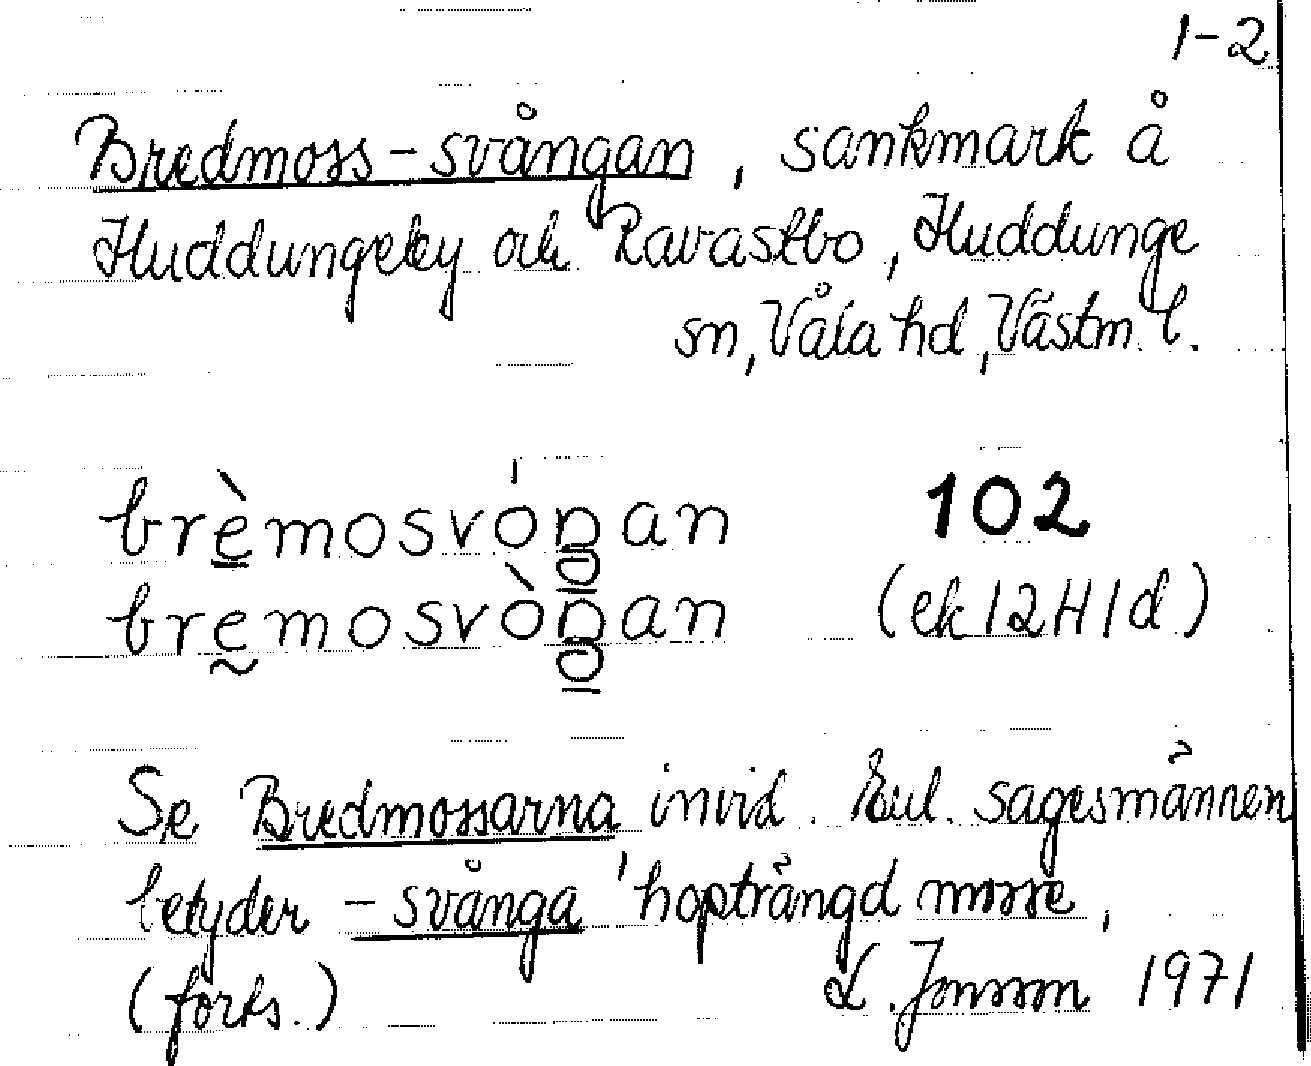 1-2
Bredmoss-svångan, sankmark å
Huddungeby och Ravastbo, Huddunge
sn, Våla hd, Västm. l.
brèmosvóŋan 102
bremosvòŋan (ek 12H1d)
Se Bredmossarna invid. Enl. sagesmännen
betyder -svånga 'hopträngd mosse,
(forts.) L. Jonsson 1971